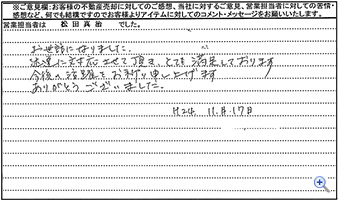 ※ご意見欄:お客様の不動産売却に対してのご感想、当社に対するご意見、営業担当者に対しての苦情・
感想など、何でも結構ですのでお客様よりアイテムに対してのコメント・メッセージをお願いいたします。
営業担当者は 松田真治 でした。
お世話になりました。
迅速に対応させて頂き、とても満足しております
今後の活躍をお祈り申し上げます
ありがとうございました。
H24 11月17日